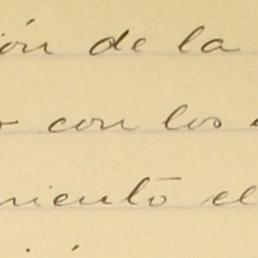 ión de la
o con los
miento el